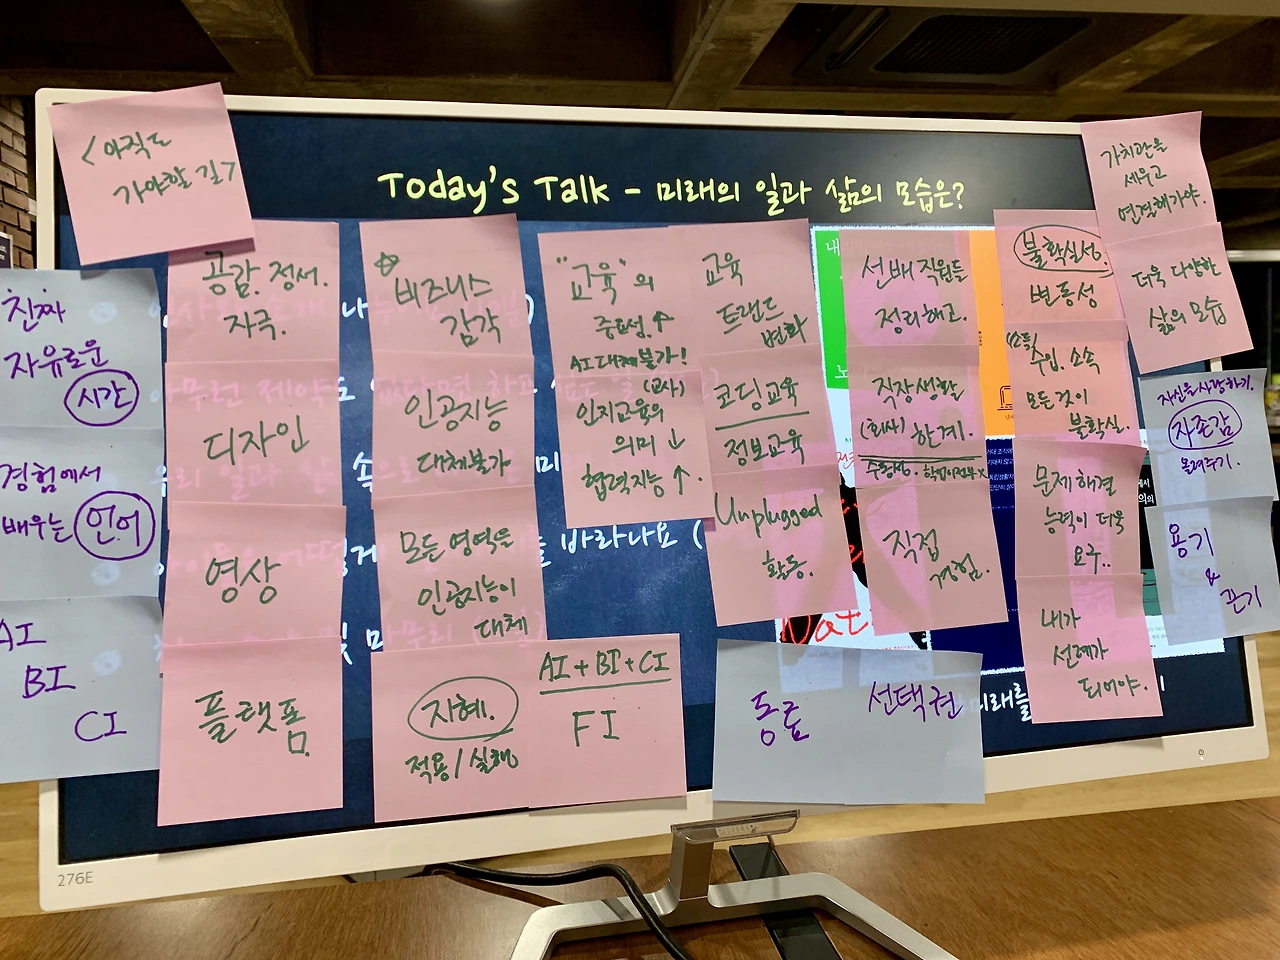 Today's Talk - 미래의 일과 삶의 모습은?
<아직도
가야할 길>
공감. 정서.
자극.
디자인
영상
플랫폼
비즈니스
감각
인공지능
대체불가
모든 영역을
인공지능이
대체
지혜.
적용/실행
"교육"의
중요성.↑
AI대체불가!
(교사)
인지교육의
의미↓
협력지능↑.
AI+BI+CI
FI
교육
트랜드
변화
코딩교육
정보교육
Unplugged
활동.
선배 직원들
정리해고.
직장생활
(회사) 한계.
직접
경험.
불확실성.
변동성
수입, 소속
모든것이
불확실.
문제해결
능력이 더욱
요구..
내가
선례가
되어야.
가치관을
세우고
연결해가야.
더욱 다양한
삶의 모습
진짜
자유로운
시간
경험에서
배우는 언어
AI
BI
CI
동료
선택권
미래를
자신을사랑하기.
자존감
용기
&
끈기
바라나요 (
276E